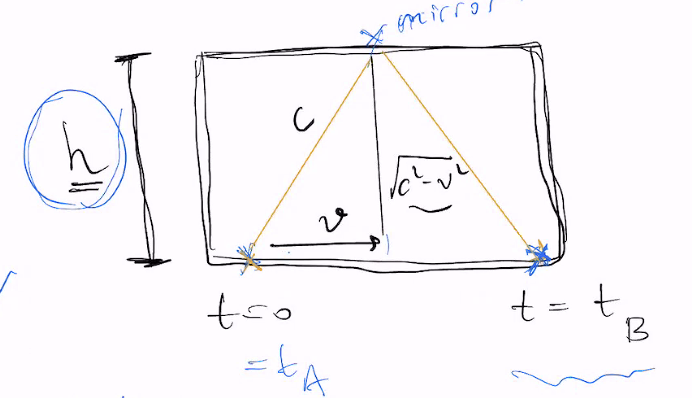 mirror
h
c
√c²-v²
v
t=0
= t_A
t = t_B